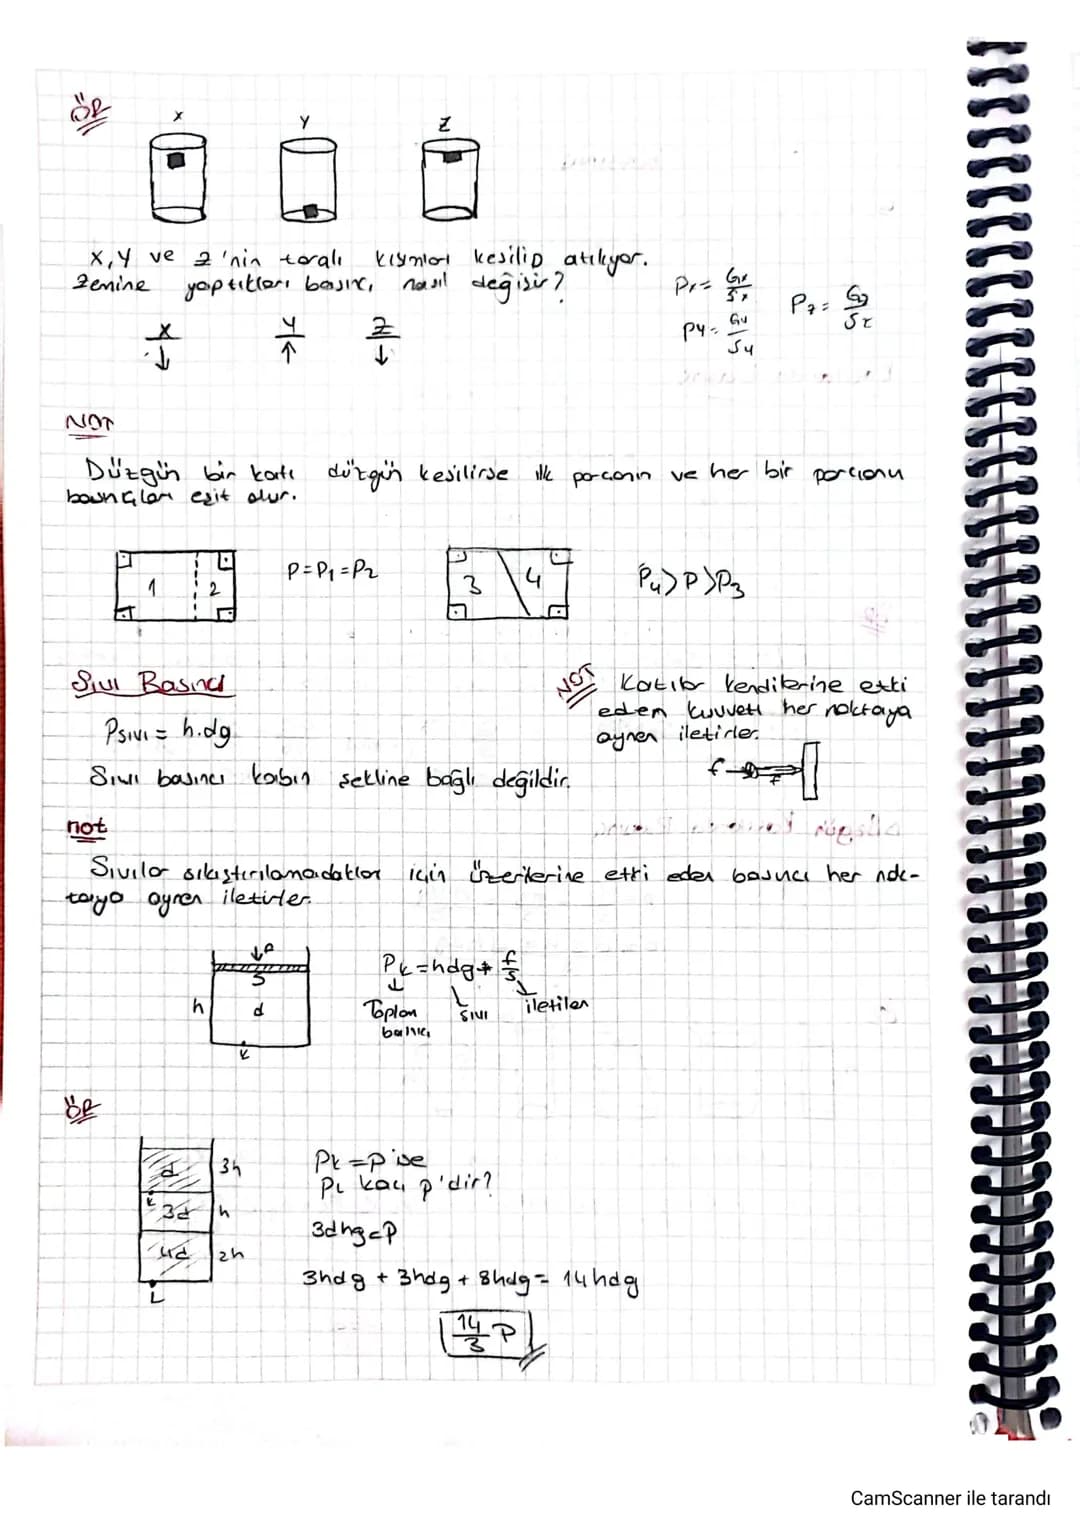 ÖR
X Y Z
X, Y ve Z'nin taralı kısımları kesilip atılıyor.
Zemine yaptıkları basınç nasıl değişir?
X ↓ Y ↑ Z ↓
Px = Gx/Sx
Py = Gy/Sy
Pz = Gz/Sz
NOT
Düzgün bir katı düzgün kesilirse ilk parçanın ve her bir parçanın
basınçları eşit olur.
1 2
P=P₁=P₂
3 4
P₄>P>P₃
Sıvı Basıncı
Psıvı = h.dg
Sıvı basıncı kabın şekline bağlı değildir.
NOT Katılar kendilerine etki
eden kuvveti her noktaya
aynen iletirler.
f F
not
Sıvılar sıkıştırılamadıkları için üzerilerine etki eden basıncı her nok-
taya aynen iletirler.
S
h d
K
Pk=hdg+f/s
Toplam sıvı iletilen
basınç
ÖR
d 3h
K
3d h
4d 2h
L
Pk=P ise
PL kaç p'dir?
3dhg=P
3hdg + 3hdg + 8hdg = 14hdg
14/3 P
CamScanner ile tarandı